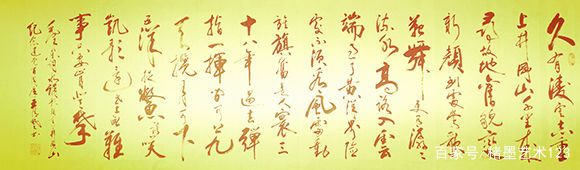 久有凌云志重
上井冈山千里来
寻故地旧貌变
新颜到处莺
歌燕舞更有潺潺
流水高路入云
端过了黄洋界险
处不须看风雷动
旌旗奋是人寰三
十八年过去弹
指一挥间可上九
天揽月可下
五洋捉鳖谈笑
凯歌还世上无难
事只要肯登攀
毛主席词水调歌头重上井冈山
百家号/楮墨艺术123